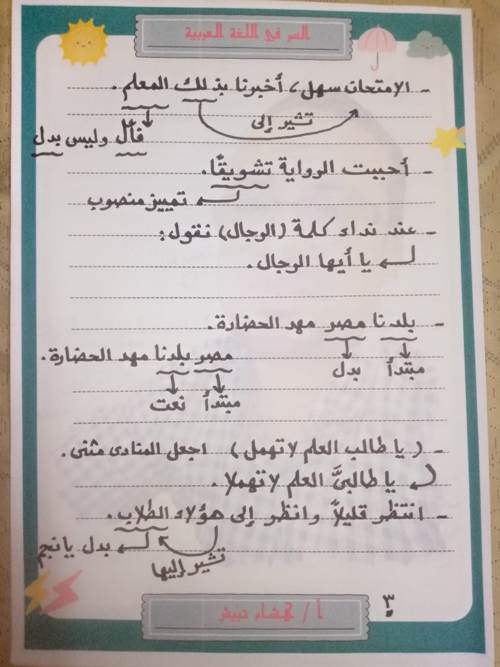 السر في اللغة العربية
- الإمتحان سهل، أخبرنا بذلك المعلم.
تشير إلى
فاعل وليس بدل
- أحببت الرواية تشويقًا.
تمييز منصوب
- عند نداء كلمة (الرجال) نقول:
يا أيها الرجال.
- بلدنا مصر مهد الحضارة.
مبتدأ بدل
مصر بلدنا مهد الحضارة.
مبتدأ نعت
- (يا طالب العلم لا تهمل) اجعل المنادى مثنى.
يا طالبيَّ العلم لا تهملا.
- انتظر قليلاً وانظر إلى هؤلاء الطلاب.
تشير إليها
بدل يا نجم
٣
أ /